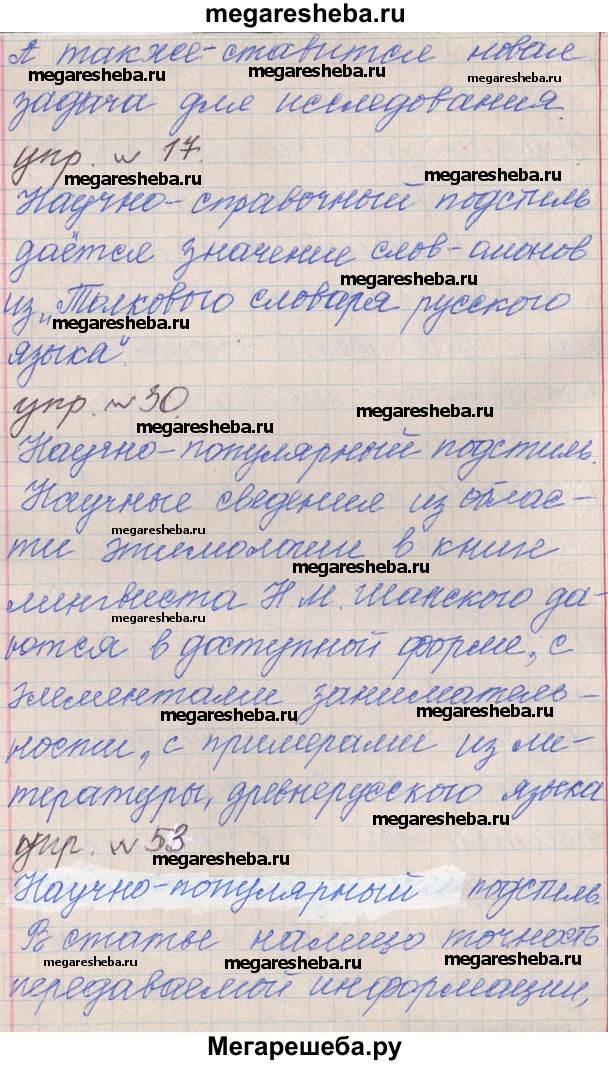 megaresheba.ru
А также-ставится новая
megaresheba.ru megaresheba.ru megaresheba.ru
задача для исследования.
упр. № 17.
megaresheba.ru megaresheba.ru
Научно-справочный подстиль
даётся значение слов-омонов
megaresheba.ru
из „Толкового словаря русского
megaresheba.ru
языка".
упр. № 30.
megaresheba.ru megaresheba.ru
Научно-популярный подстиль.
Научные сведения из облас-
megaresheba.ru
ти этимологии в книге
megaresheba.ru
лингвиста Н.М. Шанского да-
megaresheba.ru
ются в доступной форме, с
элементами заниматель-
megaresheba.ru megaresheba.ru
ности, с примерами из ли-
тературы, древнерусского языка
megaresheba.ru
упр. № 53
megaresheba.ru
Научно-популярный подстиль.
В статье налицо точность
megaresheba.ru megaresheba.ru megaresheba.ru
передаваемой информации,
Мегарешеба.ру